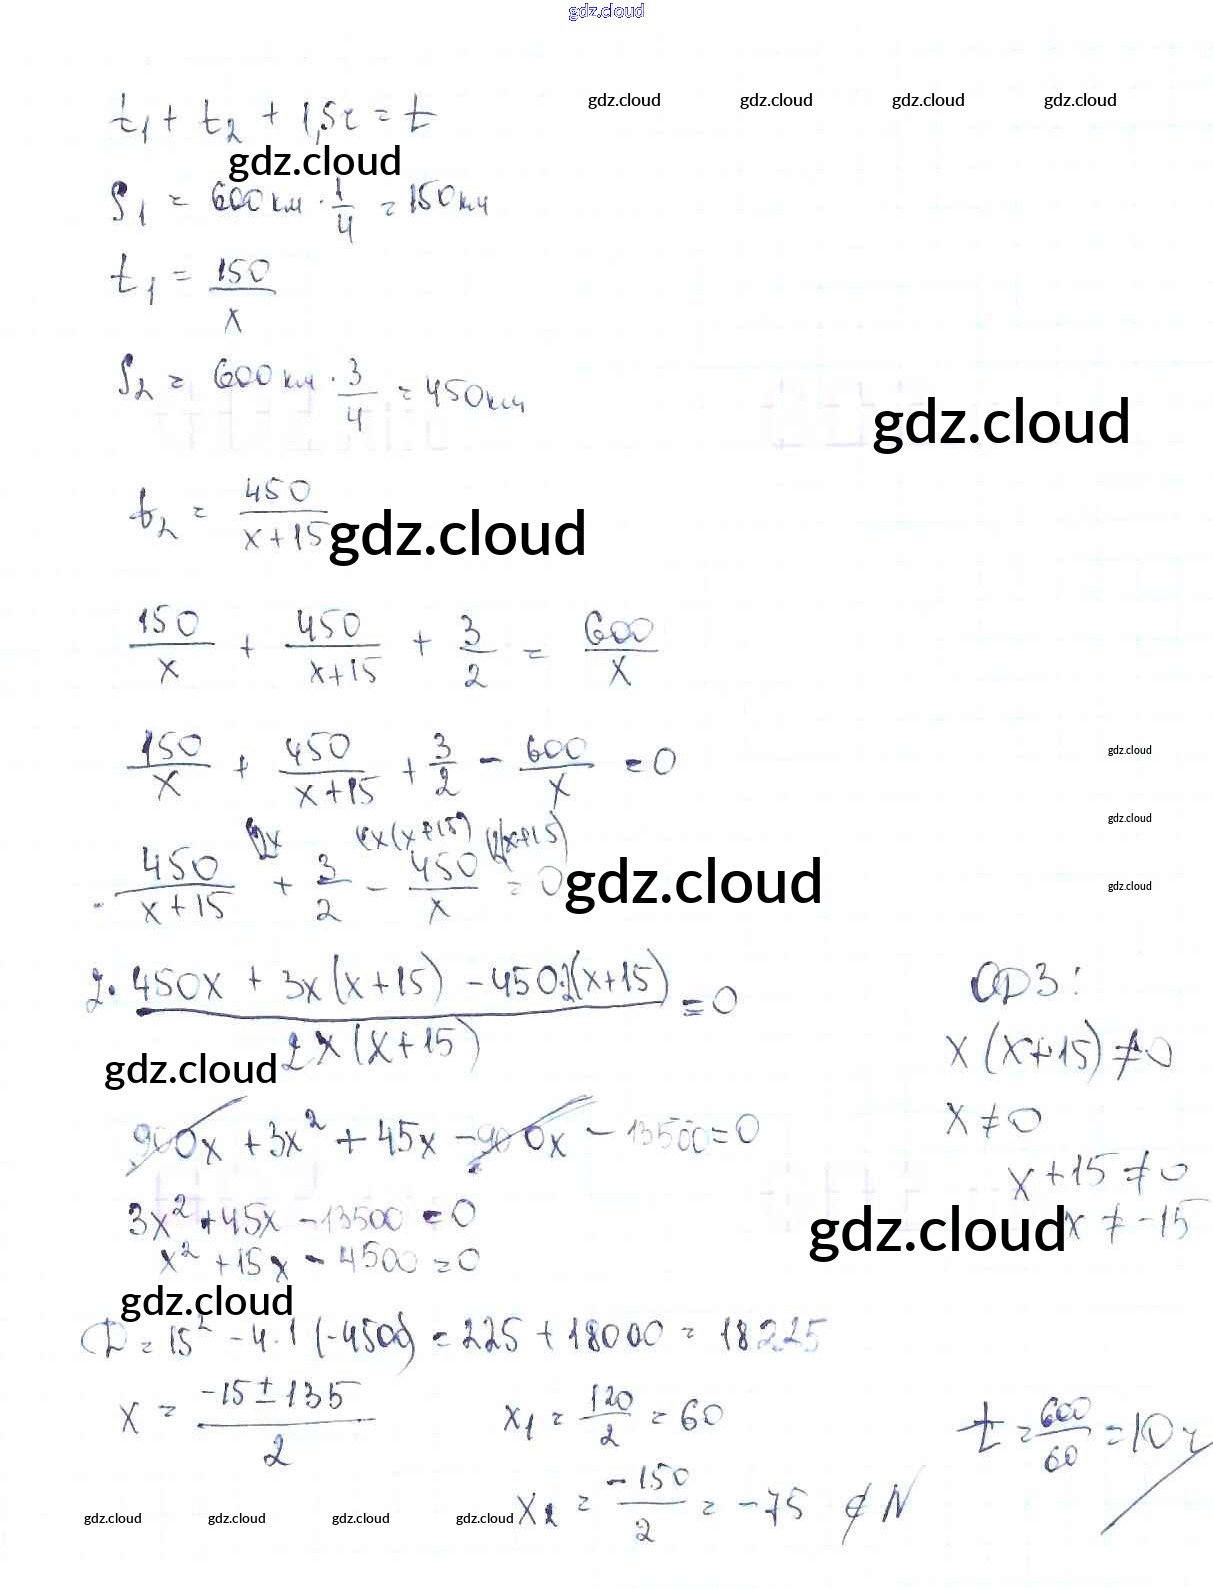 gdz.cloud
gdz.cloud gdz.cloud gdz.cloud gdz.cloud
t₁ + t₂ + 1,5ч = t
gdz.cloud
S₁ = 600км · 1/4 = 150км
t₁ = 150/x
S₂ = 600км · 3/4 = 450км
gdz.cloud
t₂ = 450/(x+15)
gdz.cloud
150/x + 450/(x+15) + 3/2 = 600/x
150/x + 450/(x+15) + 3/2 - 600/x = 0
gdz.cloud
gdz.cloud
450/(x+15) + 3/2 - 450/x = 0
gdz.cloud
gdz.cloud
2·450x + 3x(x+15) - 450·2(x+15) / 2x(x+15) = 0
ОДЗ:
x(x+15) ≠ 0
gdz.cloud
x ≠ 0
900x + 3x² + 45x - 900x - 13500 = 0
x + 15 ≠ 0
3x² + 45x - 13500 = 0
x ≠ -15
gdz.cloud
x² + 15x - 4500 = 0
gdz.cloud
D = 15² - 4·1(-4500) = 225 + 18000 = 18225
x = (-15 ± 135)/2
x₁ = 120/2 = 60
t = 600/60 = 10ч
x₂ = -150/2 = -75 ∉ N
gdz.cloud gdz.cloud gdz.cloud gdz.cloud